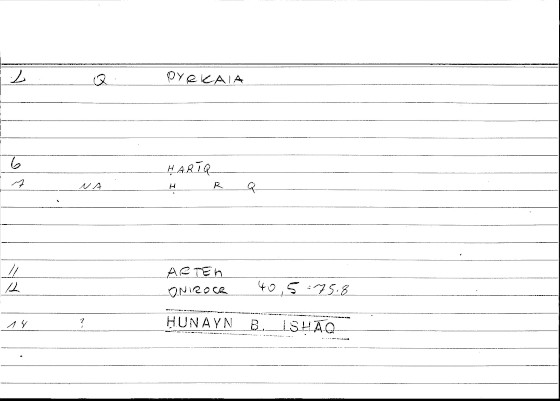 1 Q PYRKAIA
6 ḤARĪQ
7 NA Ḥ R Q
11 ARTEM
12 ONIROCR 40,5 = 75.8
14 ? ḤUNAYN B. ISḤĀQ